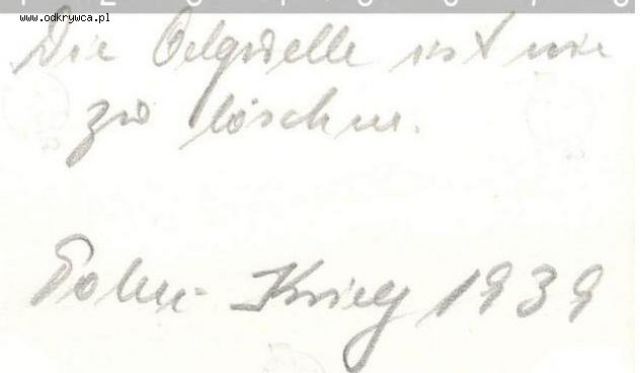 www.odkrywca.pl
Die Oelquelle ist nie
zu löschen.
Polen-Krieg 1939